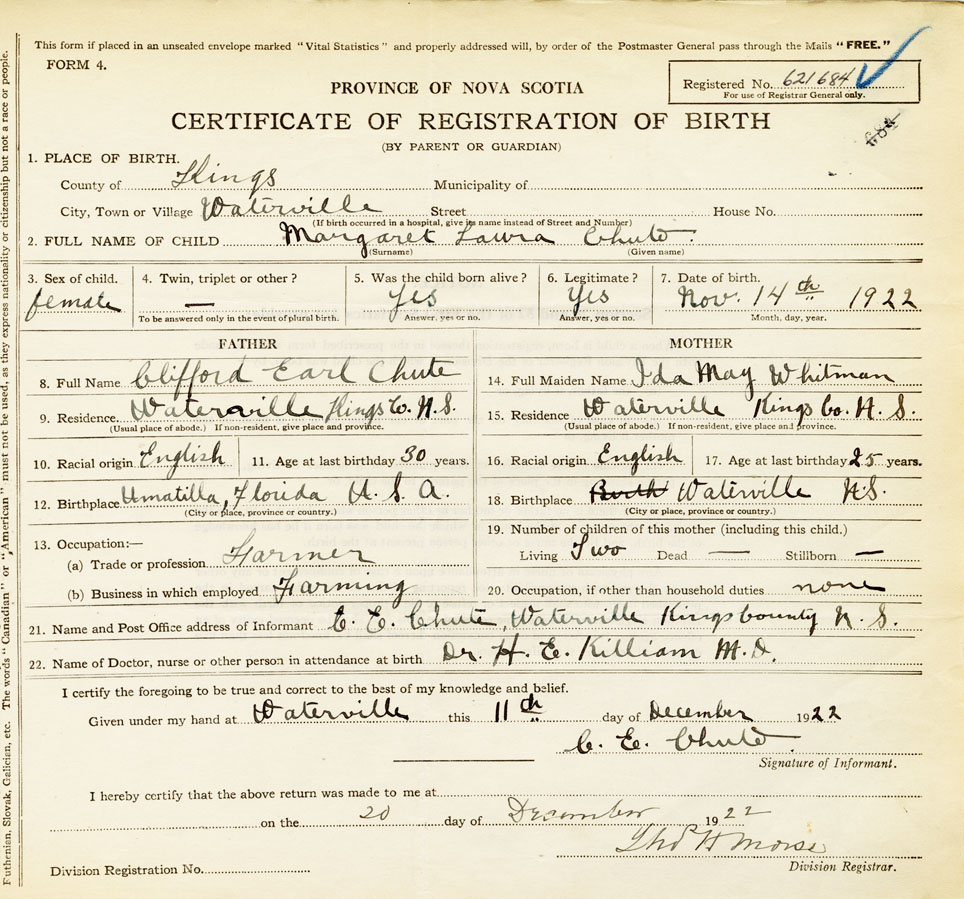 This form if placed in an unsealed envelope marked "Vital Statistics" and properly addressed will, by order of the Postmaster General pass through the Mails "FREE."
FORM 4.
Registered No. 621684
For use of Registrar General only.
PROVINCE OF NOVA SCOTIA
CERTIFICATE OF REGISTRATION OF BIRTH
(BY PARENT OR GUARDIAN)
684
1. PLACE OF BIRTH.
County of Kings Municipality of
City, Town or Village Waterville Street House No.
(If birth occurred in a hospital, give its name instead of Street and Number)
2. FULL NAME OF CHILD Margaret Laura Chute.
(Surname) (Given name)
3. Sex of child. 4. Twin, triplet or other? 5. Was the child born alive? 6. Legitimate? 7. Date of birth.
female — Yes Yes Nov. 14th 1922
To be answered only in the event of plural birth. Answer, yes or no. Answer, yes or no. Month, day, year.
FATHER
8. Full Name Clifford Earl Chute
9. Residence Waterville Kings Co. N.S.
(Usual place of abode.) If non-resident, give place and province.
10. Racial origin English 11. Age at last birthday 30 years.
12. Birthplace Umatilla, Florida U. S. A.
(City or place, province or country.)
13. Occupation:—
(a) Trade or profession Farmer
(b) Business in which employed Farming
MOTHER
14. Full Maiden Name Ida May Whitman
15. Residence Waterville Kings Co. N. S.
(Usual place of abode.) If non-resident, give place and province.
16. Racial origin English 17. Age at last birthday 25 years.
18. Birthplace Waterville N.S.
(City or place, province or country.)
19. Number of children of this mother (including this child.)
Living Two Dead — Stillborn —
20. Occupation, if other than household duties none
21. Name and Post Office address of Informant C. E. Chute, Waterville Kings County N. S.
22. Name of Doctor, nurse or other person in attendance at birth Dr. H. E. Killiam M.D.
I certify the foregoing to be true and correct to the best of my knowledge and belief.
Given under my hand at Waterville this 11th day of December 1922
C. E. Chute.
Signature of Informant.
I hereby certify that the above return was made to me at
on the 20 day of December 1922
Thos H Morse
Division Registration No. Division Registrar.
Futhenian, Slovak, Galician, etc. The words "Canadian" or "American" must not be used, as they express nationality or citizenship but not a race or people.